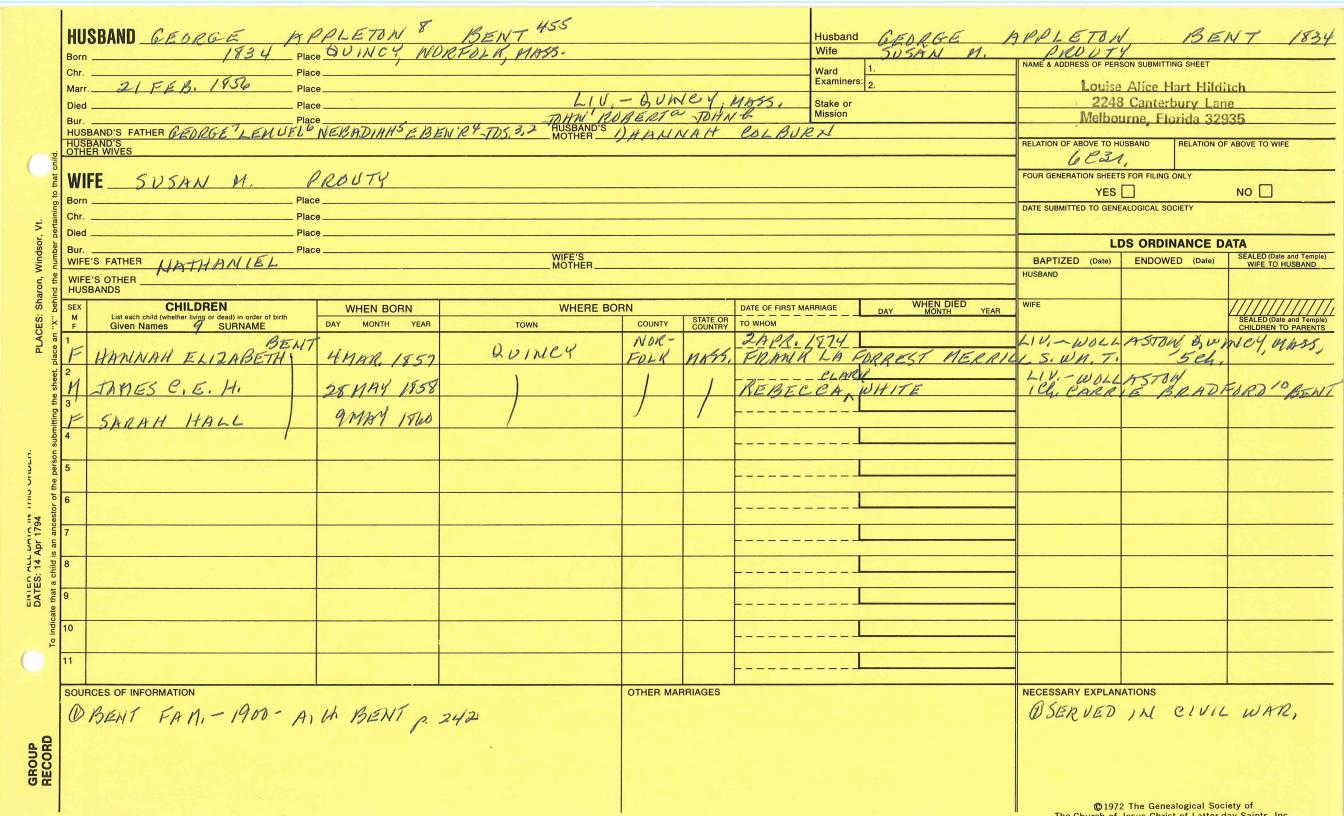 HUSBAND GEORGE APPLETON 8 BENT 455
Born 1834 Place QUINCY, NORFOLK, MASS.
Chr. Place
Marr. 21 FEB. 1856 Place
Died Place LIV. - QUINCY, MASS.
Bur. Place JOHN ROBERT JOHN
HUSBAND'S FATHER GEORGE 7 LEMUEL 6 NEBADIAH 5 EBEN'R 4 JOS. 3, 2 HUSBAND'S MOTHER HANNAH COLBURN
HUSBAND'S OTHER WIVES
WIFE SUSAN M. PROUTY
Born Place
Chr. Place
Died Place
Bur. Place
WIFE'S FATHER NATHANIEL WIFE'S MOTHER
WIFE'S OTHER HUSBANDS
Husband GEORGE APPLETON BENT 1834
Wife SUSAN M. PROUTY
Ward Examiners: 1.
2.
Stake or Mission
NAME & ADDRESS OF PERSON SUBMITTING SHEET
Louise Alice Hart Hilditch
2248 Canterbury Lane
Melbourne, Florida 32935
RELATION OF ABOVE TO HUSBAND RELATION OF ABOVE TO WIFE
6C3r.
FOUR GENERATION SHEETS FOR FILING ONLY
YES NO
DATE SUBMITTED TO GENEALOGICAL SOCIETY
LDS ORDINANCE DATA
BAPTIZED (Date) ENDOWED (Date) SEALED (Date and Temple) WIFE TO HUSBAND
HUSBAND
WIFE
SEALED (Date and Temple) CHILDREN TO PARENTS
SEX M F
CHILDREN
List each child (whether living or dead) in order of birth
Given Names 9 SURNAME
WHEN BORN
DAY MONTH YEAR
WHERE BORN
TOWN COUNTY STATE OR COUNTRY
DATE OF FIRST MARRIAGE
TO WHOM
WHEN DIED
DAY MONTH YEAR
1 F HANNAH ELIZABETH BENT 4 MAR. 1857 QUINCY NOR-FOLK MASS. 2 APR. 1874 LIV. - WOLLASTON QUINCY, MASS.
FRANK LA FORREST MERRILL S. WM. T. 5 ch.
2 M JAMES C. E. H. 28 MAY 1858 REBECCA CLARK WHITE LIV. - WOLLASTON
1 Ch. CARRIE BRADFORD 10 BENT
3 F SARAH HALL 9 MAY 1860
4
5
6
7
8
9
10
11
SOURCES OF INFORMATION
① BENT FAM. - 1900 - A. H. BENT p. 242
OTHER MARRIAGES
NECESSARY EXPLANATIONS
① SERVED IN CIVIL WAR.
©1972 The Genealogical Society of
The Church of Jesus Christ of Latter-day Saints, Inc.
PLACES: Sharon, Windsor, Vt.
DATES: 14 Apr 1794
To indicate that a child is an ancestor of the person submitting the sheet, place an "X" behind the number pertaining to that child.
GROUP RECORD